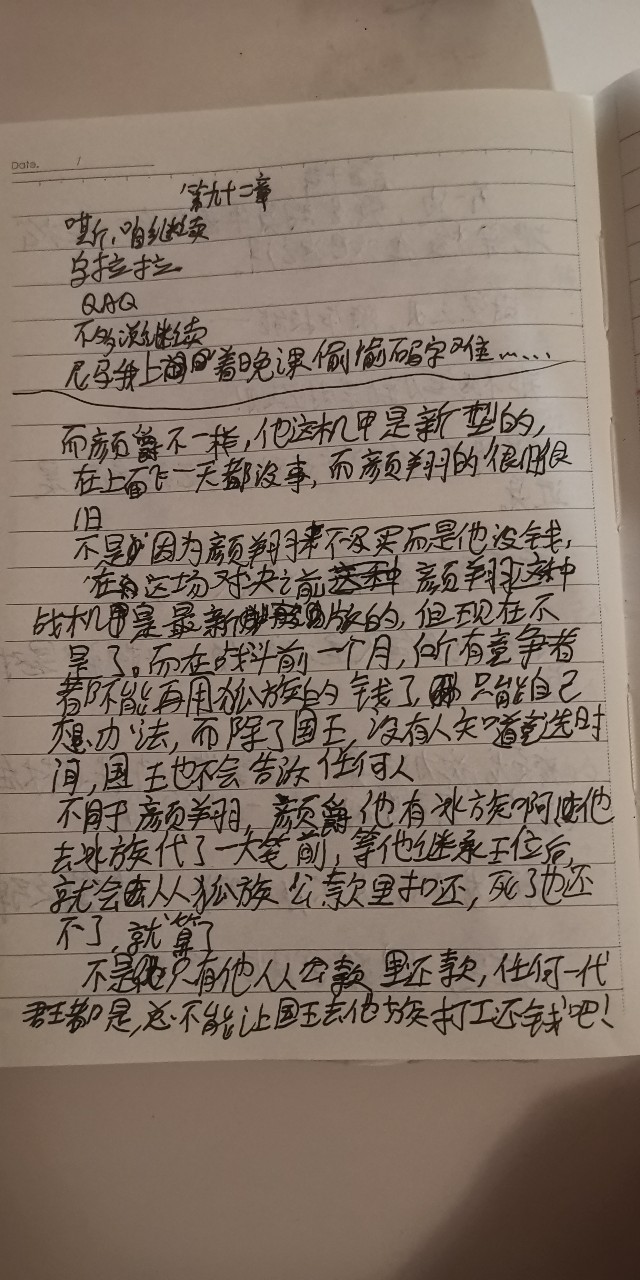 Date. /
第九十二章
嘿斤,咱继续
乌拉拉
QAQ
不多说继续
尼玛我上着晚课偷偷码字难……
而颜爵不一样,他这机甲是新型的,
在上面飞一天都没事,而颜翔的很旧很
旧
不是因为颜翔来不及买而是他没钱,
在这场对决之前颜翔这种
战机甲是最新版的,但现在不
是了。而在战斗前一个月,所有竞争者
都不能再用狐族的钱了,只能自己
想办法,而除了国王,没有人知道重选时
间,国王也不会告诉任何人
不同于颜翔,颜爵他有冰族啊他
去冰族代了一大笔前,等他继承王位后,
就会从狐族公款里扣还,死了也还
不了,就算了
不是只有他从公款里还款,任何一代
君王都是,总不能让国王去他族打工还钱吧!